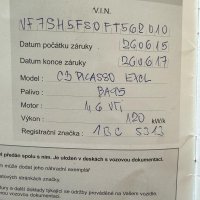 V.I.N.
VF7SH5FS0FT562010
Datum počátku záruky 260615
Datum konce záruky 260617
Model: C3 PICASSO EXCL
Palivo: BA95
Motor: 1,6 VTi
Výkon: 120 kW/k
Registrační značka: 1BC 5313
předán spolu s ním. Je uložen v deskách s vozovou dokumentací.
jení náhradní exemplář
s vozovou dokumentaci.
ů a další doklady týkající se údržby prováděné na Vašem vozidle,